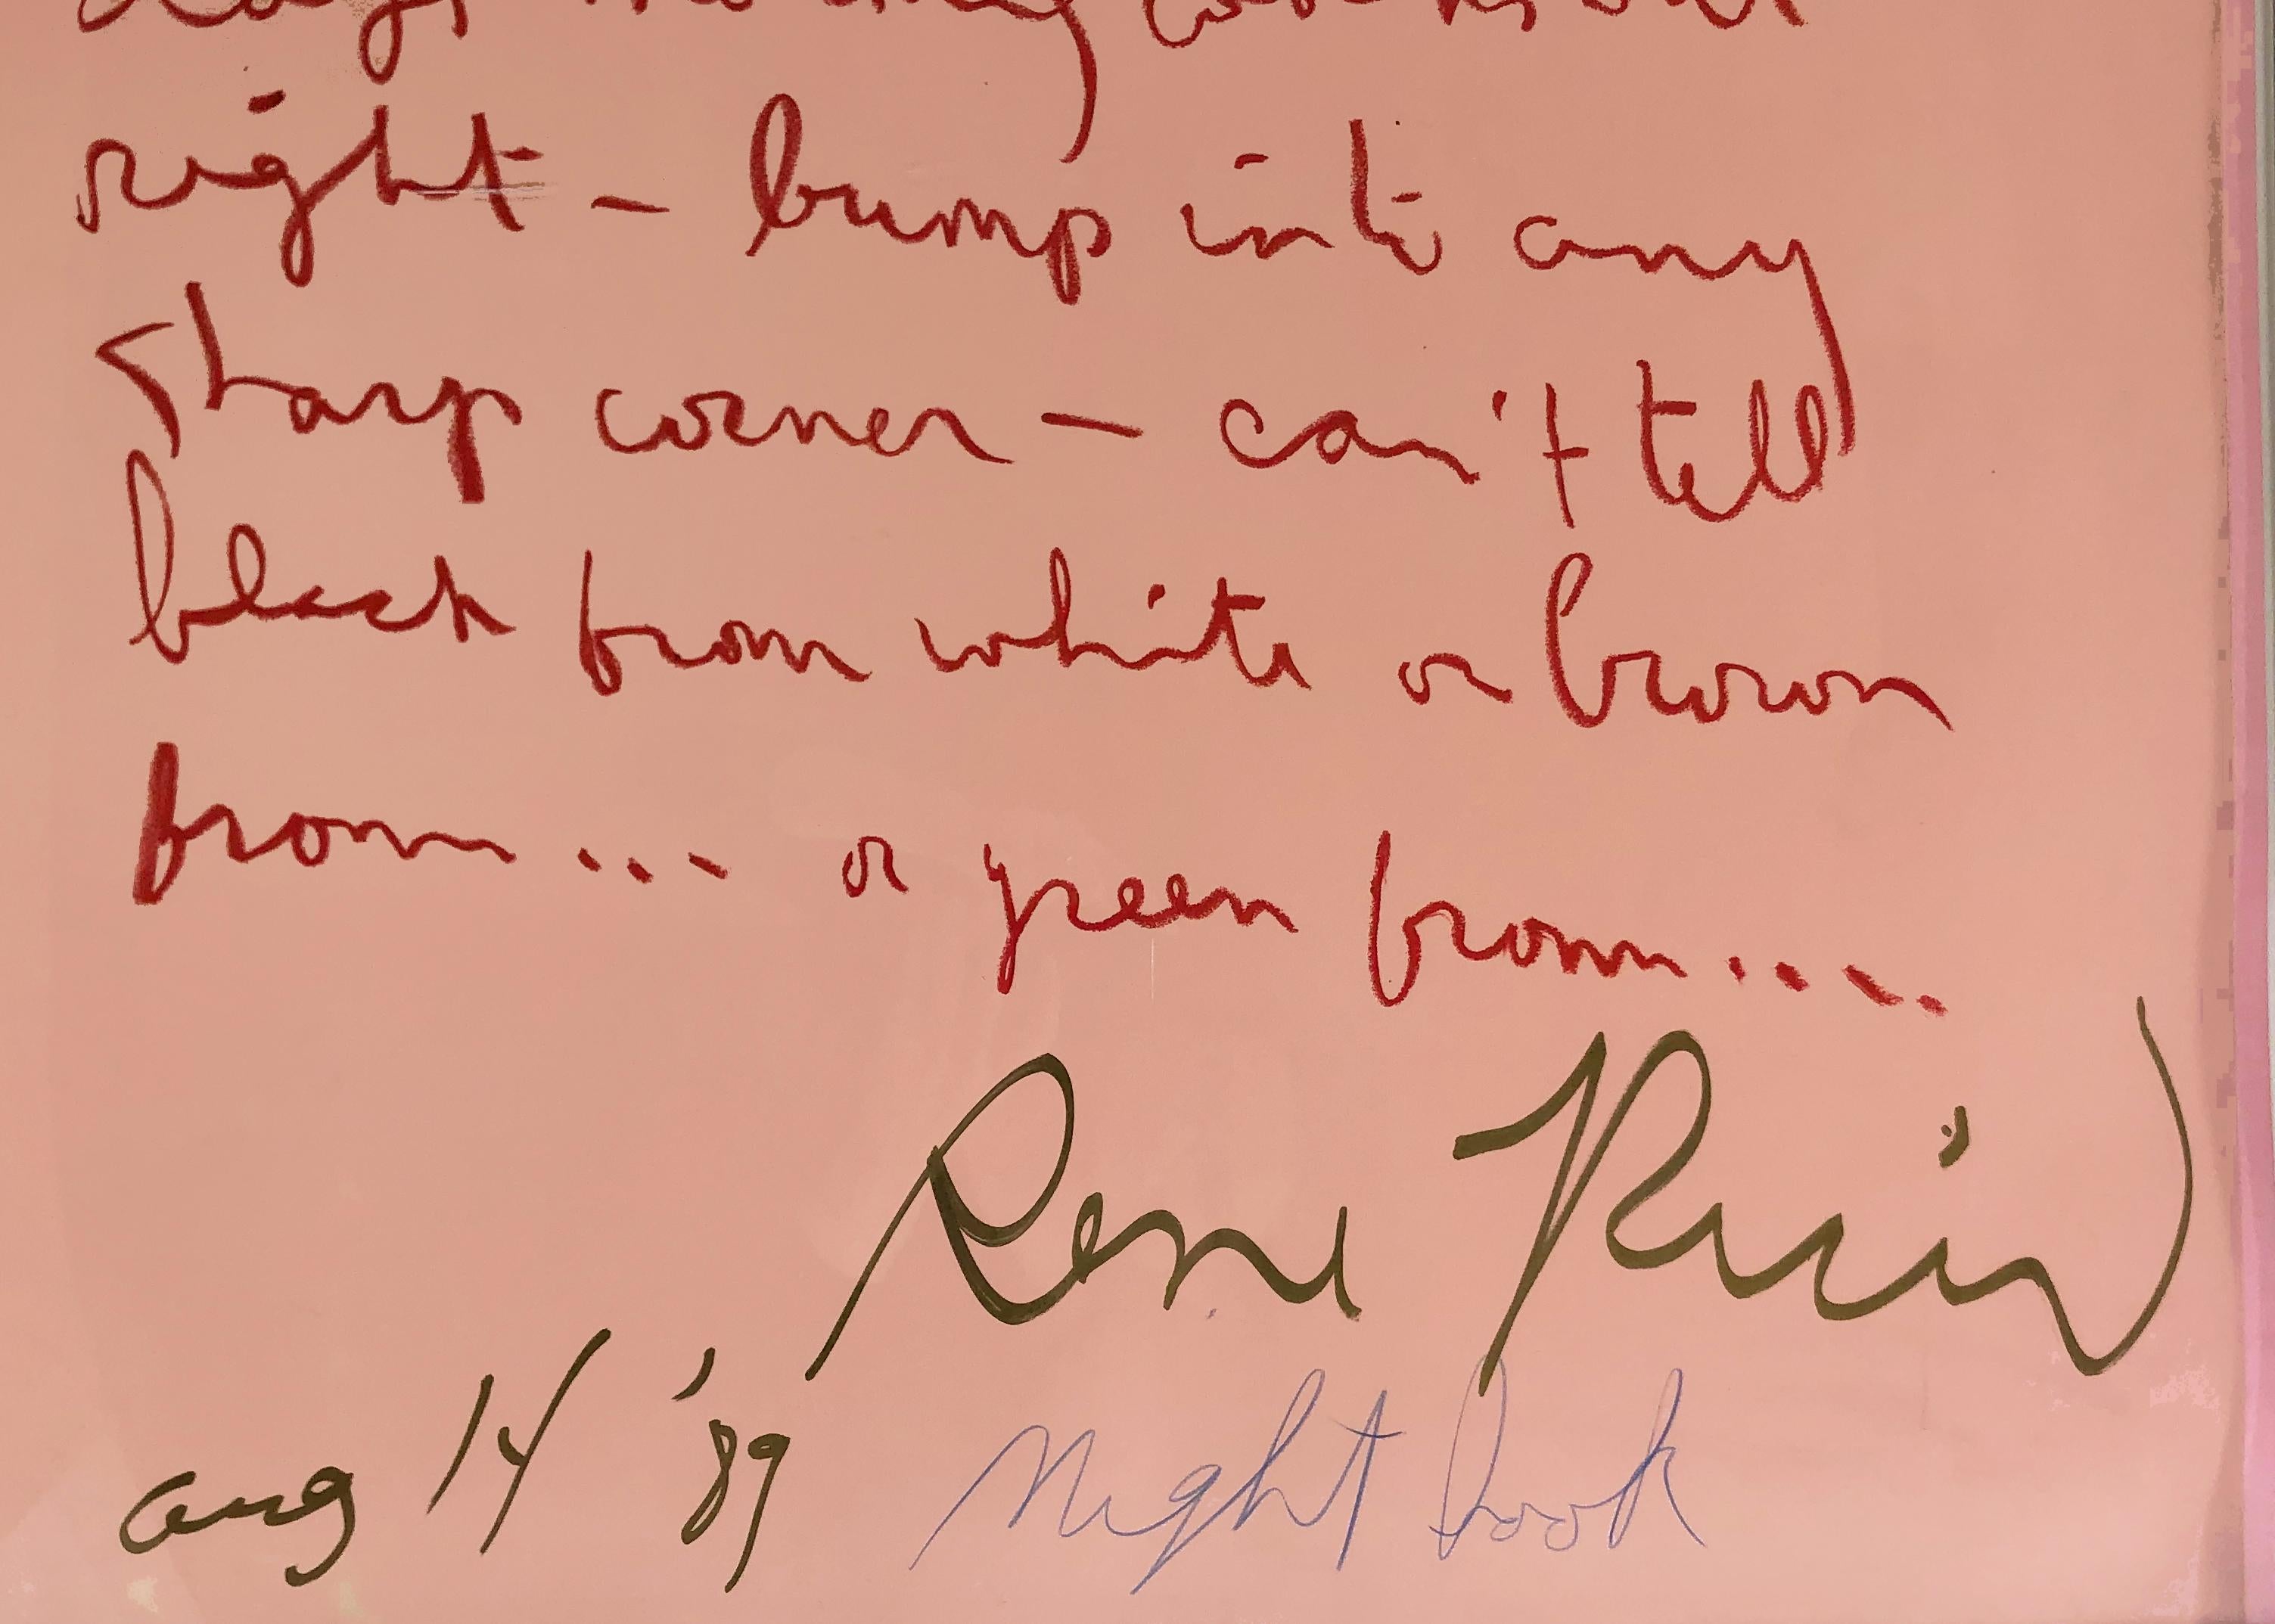 days
right – bump into any
sharp corner – can't tell
black from white or brown
from... or green from....
Rene
aug 14 '89 Night book